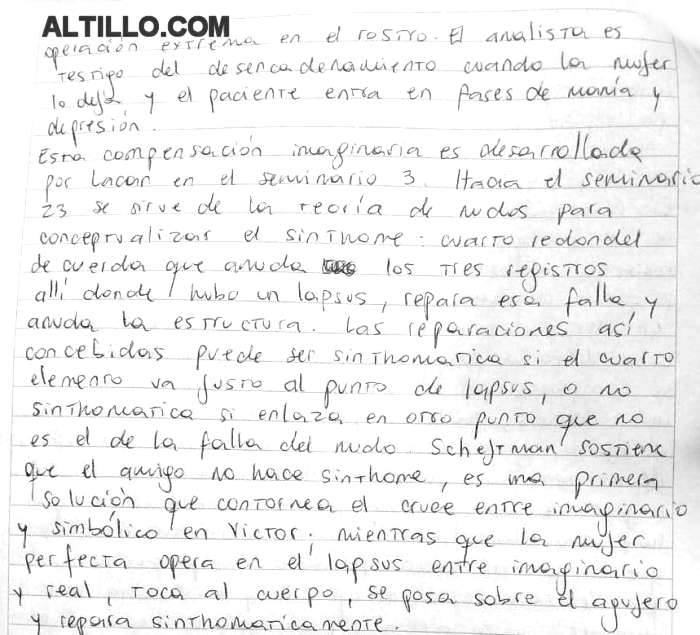 ALTILLO.COM
operación extrema en el rostro. El analista es
testigo del desencadenamiento cuando la mujer
lo deja y el paciente entra en fases de manía y
depresión.
Esta compensación imaginaria es desarrollada
por Lacan en el seminario 3. Hacia el seminario
23 se sirve de la teoría de nudos para
conceptualizar el sinthome: cuarto redondel
de cuerda que anuda los tres registros
allí donde hubo un lapsus, repara esa falla y
anuda la estructura. Las reparaciones así
concebidas puede ser sinthomatica si el cuarto
elemento va justo al punto de lapsus, o no
sinthomatica si enlaza en otro punto que no
es el de la falla del nudo. Schejtman sostiene
que el amigo no hace sinthome, es una primera
solución que contornea el cruce entre imaginario
y simbólico en Victor; mientras que la mujer
perfecta opera en el lapsus entre imaginario
y real, toca al cuerpo, se posa sobre el agujero
y repara sinthomaticamente.